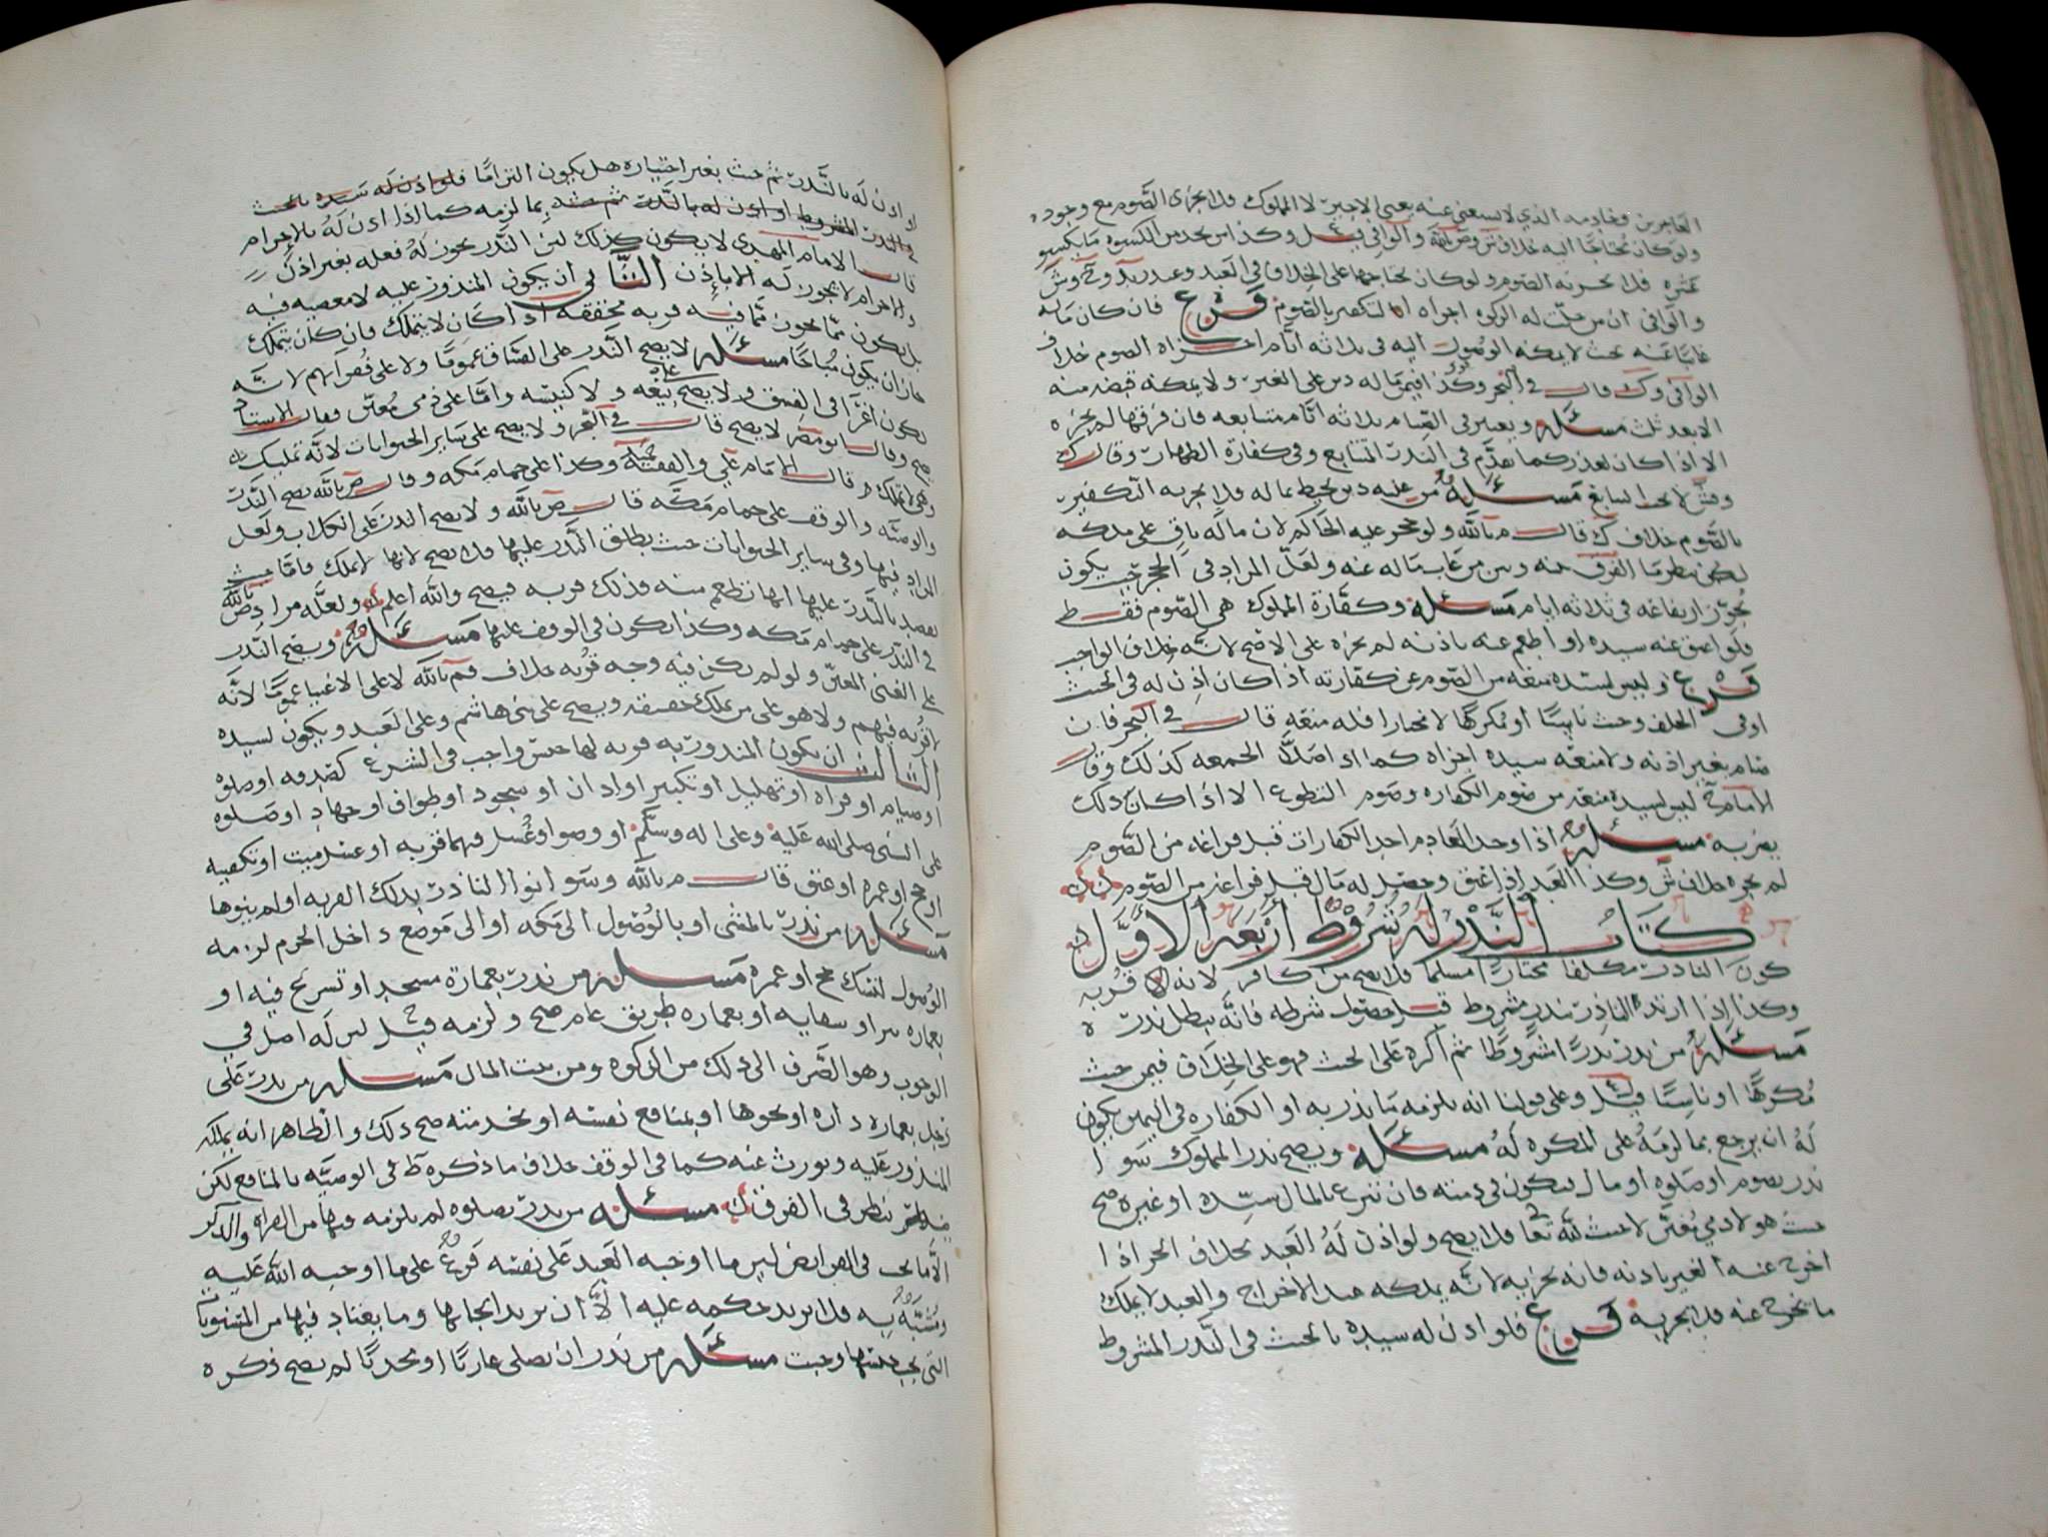 العاجزين وخادمه الذي لا يستغني عنه يعني الاجير لا المملوك فلا يجزي الصوم مع وجوده
ولو كان محتاجا اليه خلاف ش وص بالله والوافي قيل وكذا من يجد من الكسوه ما يكسو
عشره فلا يجزيه الصوم ولو كان محتاجها على الخلاف في العبد وعند
والوافي ان من حلت له الزكوه اجزاه التكفير بالصوم فرع فان كان ماله
غايبا عنه بحيث لا يمكنه الوصول اليه في ثلاثه ايام اجزاه الصوم خلاف
الوافي وك قال في البحر وكذا فيمن ماله دين على الغير ولا يمكنه قبضه منه
الا بعد ثلث مسئله ويعتبر في الصيام ثلاثه ايام متتابعه فان فرقها لم يجزه
الا اذا كان لعذر كما تقدم في النذر المتتابع وفي كفارة الظهار وقال ك
وش لا يجب التتابع مسئله من عليه دين يحيط بماله فلا يجزيه التكفير
بالصوم خلاف ك قال م بالله ولو حجر عليه الحاكم لان ماله باق على ملكه
لكن ينظر ما الفرق بينه وبين من غاب ماله عنه ولعل المراد في الحجر حيث يكون
يجوز ارتفاعه في ثلاثه ايام مسئله وكفارة المملوك هي الصوم فقط
فلو اعتق عنه سيده او اطعم عنه باذنه لم يجزه على الاصح لانه خلاف الواجب
فرع وليس لسيده منعه من الصوم عن كفارته اذا كان اذن له في الحنث
او في الحلف وحنث ناسيا او مكرها لا مختارا فله منعه قال في البحر فان
صام بغير اذنه ولا منعه سيده اجزاه كما اذا صلى الجمعه كذلك وقال
الامام ح ليس لسيده منعه من صوم الكفاره وصوم التطوع الا اذا كان ذلك
يضر به مسئله اذا وجد العادم احد الكفارات قبل فراغه من الصوم
لم يجزه خلاف ش وكذا العبد اذا عتق وحصل له مال قبل فراغه من الصوم
كتاب النذر وله شروط أربعة الأول
كون الناذر مكلفا مختارا مسلما فلا يصح من كافر لانه لا قربه
وكذا اذا ارتد الناذر بنذر مشروط قبل حصول شرطه فانه يبطل نذره
مسئله من نذر نذرا مشروطا ثم اكره على الحنث فهو على الخلاف فيمن حنث
مكرها او ناسيا قيل وعلى قولنا انه يلزمه ما نذر به او الكفاره في اليمين يكون
له ان يرجع بما لزمه على المكره له مسئله ويصح نذر المملوك سوا
نذر بصوم او صلوه او مال فيكون في ذمته فان تبرع بالمال سيده او غيره صح
حيث هو لادمي معين لا حيث لله تعا فلا يصح ولو اذن له العبد بخلاف الحر اذا
اخرج عنه الغير باذنه فانه يجزيه لانه يملكه عند الاخراج والعبد لا يملك
ما يخرج عنه فلا يجزيه فرع فلو اذن له سيده بالحنث في النذر المشروط
او اذن له بالنذر ثم حنث بغير اختياره هل يكون التزاما فلو اذن له سيده بالحنث
في النذر المشروط او اذن له بالنذر ثم حنث بما لزمه كما اذا اذن له بالاحرام
قال الامام المهدي لا يكون كذلك لان النذر يجوز له فعله بغير اذن
والاحرام لا يجوز له الا باذن الثاني أن يكون المنذور عليه لا معصيه فيه
بل يكون مما يجوز مما فيه قربه محققه اذا كان لا يتملك فان كان يتملك
جاز ان يكون مباحا مسئله لا يصح النذر على الفساق عموما ولا على فقرآيهم لانه
يكون اغرآ في الفسق ولا يصح على بيعه ولا كنيسه واما على ذمي معين فقال الاستاد
يصح وقال ابو مضر لا يصح قال في البحر ولا يصح على ساير الحيوانات لانه تمليك
وهي لا تملك وقال الامام علي والفقيه وكذا على حمام مكه وقال ص بالله يصح النذر
والوصيه والوقف على حمام مكه قال ص بالله ولا يصح النذر على الكلاب ولعل
المراد فيها وفي ساير الحيوانات حيث يطلق النذر عليها فلا يصح لانها لا تملك فاما حيث
يقصد بالنذر عليها انها تطعم منه فذلك قربه فيصح والله اعلم ولعله مراد ص بالله
في النذر على حمام مكه وكذا يكون في الوقف عليها مسئله ويصح النذر
على الغني المعين ولو لم يكن فيه وجه قربه خلاف قم بالله لا على الاغنيا عموما لانه
لا قربه فيهم ولا هو على من يملك حقيقه ويصح على بني هاشم وعلى العبد ويكون لسيده
الثالث ان يكون المنذور به قربه لها جنس واجب في الشرع كصدقه او صلوه
او صيام او قراه او تهليل او تكبير او اذان او سجود او طواف او جهاد او صلوه
على النبي صلى الله عليه وعلى اله وسلم او وضوا وغسل فيهما قربه او غسل ميت او تكفينه
او حج او عمره او عتق قال م بالله وسوا نوا الناذر بذلك القربه او لم ينوها
مسئله من نذر بالمشي او بالوصول الى مكه او الى موضع داخل الحرم لزمه
الوصول لنسك حج او عمره مسئله من نذر بعمارة مسجد او تسريج فيه او
بعماره بير او سقايه او بعماره طريق عام صح ولزمه قيل لان له اصل في
الوجوب وهو الصرف الى ذلك من الزكوه ومن بيت المال مسئله من نذر على
رجل بعمارة داره او نحوها او بمنافع نفسه او بخدمته صح ذلك والظاهر انه يملكه
المنذور عليه ويورث عنه كما في الوقف خلاف ما ذكره ط في الوصيه بالمنافع لكن
ينظر في الفرق مسئله من نذر بصلوه لم يلزمه فيها من القراه والذكر
الا ما يجب في الفرايض لان ما اوجبه العبد على نفسه فرع على ما اوجبه الله عليه
ومشبه به فلا يزيد حكمه عليه الا ان يريد ايجابها وما يعتاد فيها من المسنونات
التي وجبت مسئله من نذر ان يصلي عاريا او محدثا لم يصح ذكره